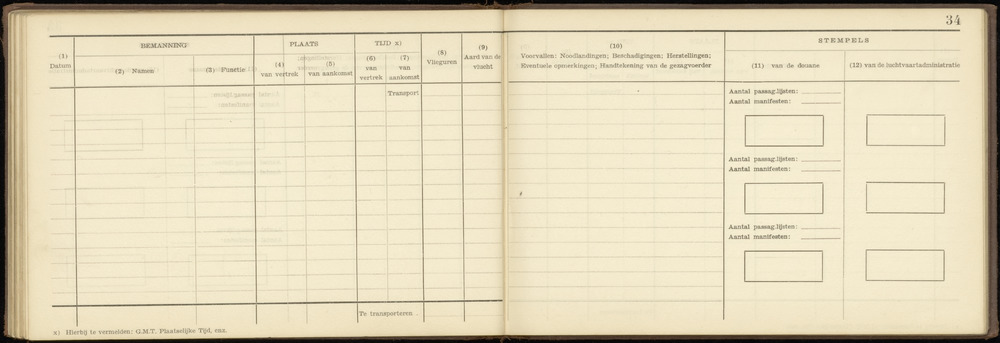 34
(1)
Datum
BEMANNING
(2) Namen
(3) Functie
PLAATS
(4)
van vertrek
(5)
van aankomst
TIJD x)
(6)
van
vertrek
(7)
van
aankomst
(8)
Vlieguren
(9)
Aard van de
vlucht
(10)
Voorvallen: Noodlandingen; Beschadigingen; Herstellingen;
Eventuele opmerkingen; Handtekening van de gezagvoerder
STEMPELS
(11) van de douane
(12) van de luchtvaartadministratie
Transport
Aantal passag.lijsten:
Aantal manifesten:
Aantal passag.lijsten:
Aantal manifesten:
Aantal passag.lijsten:
Aantal manifesten:
Te transporteren
x) Hierbij te vermelden: G.M.T. Plaatselijke Tijd, enz.